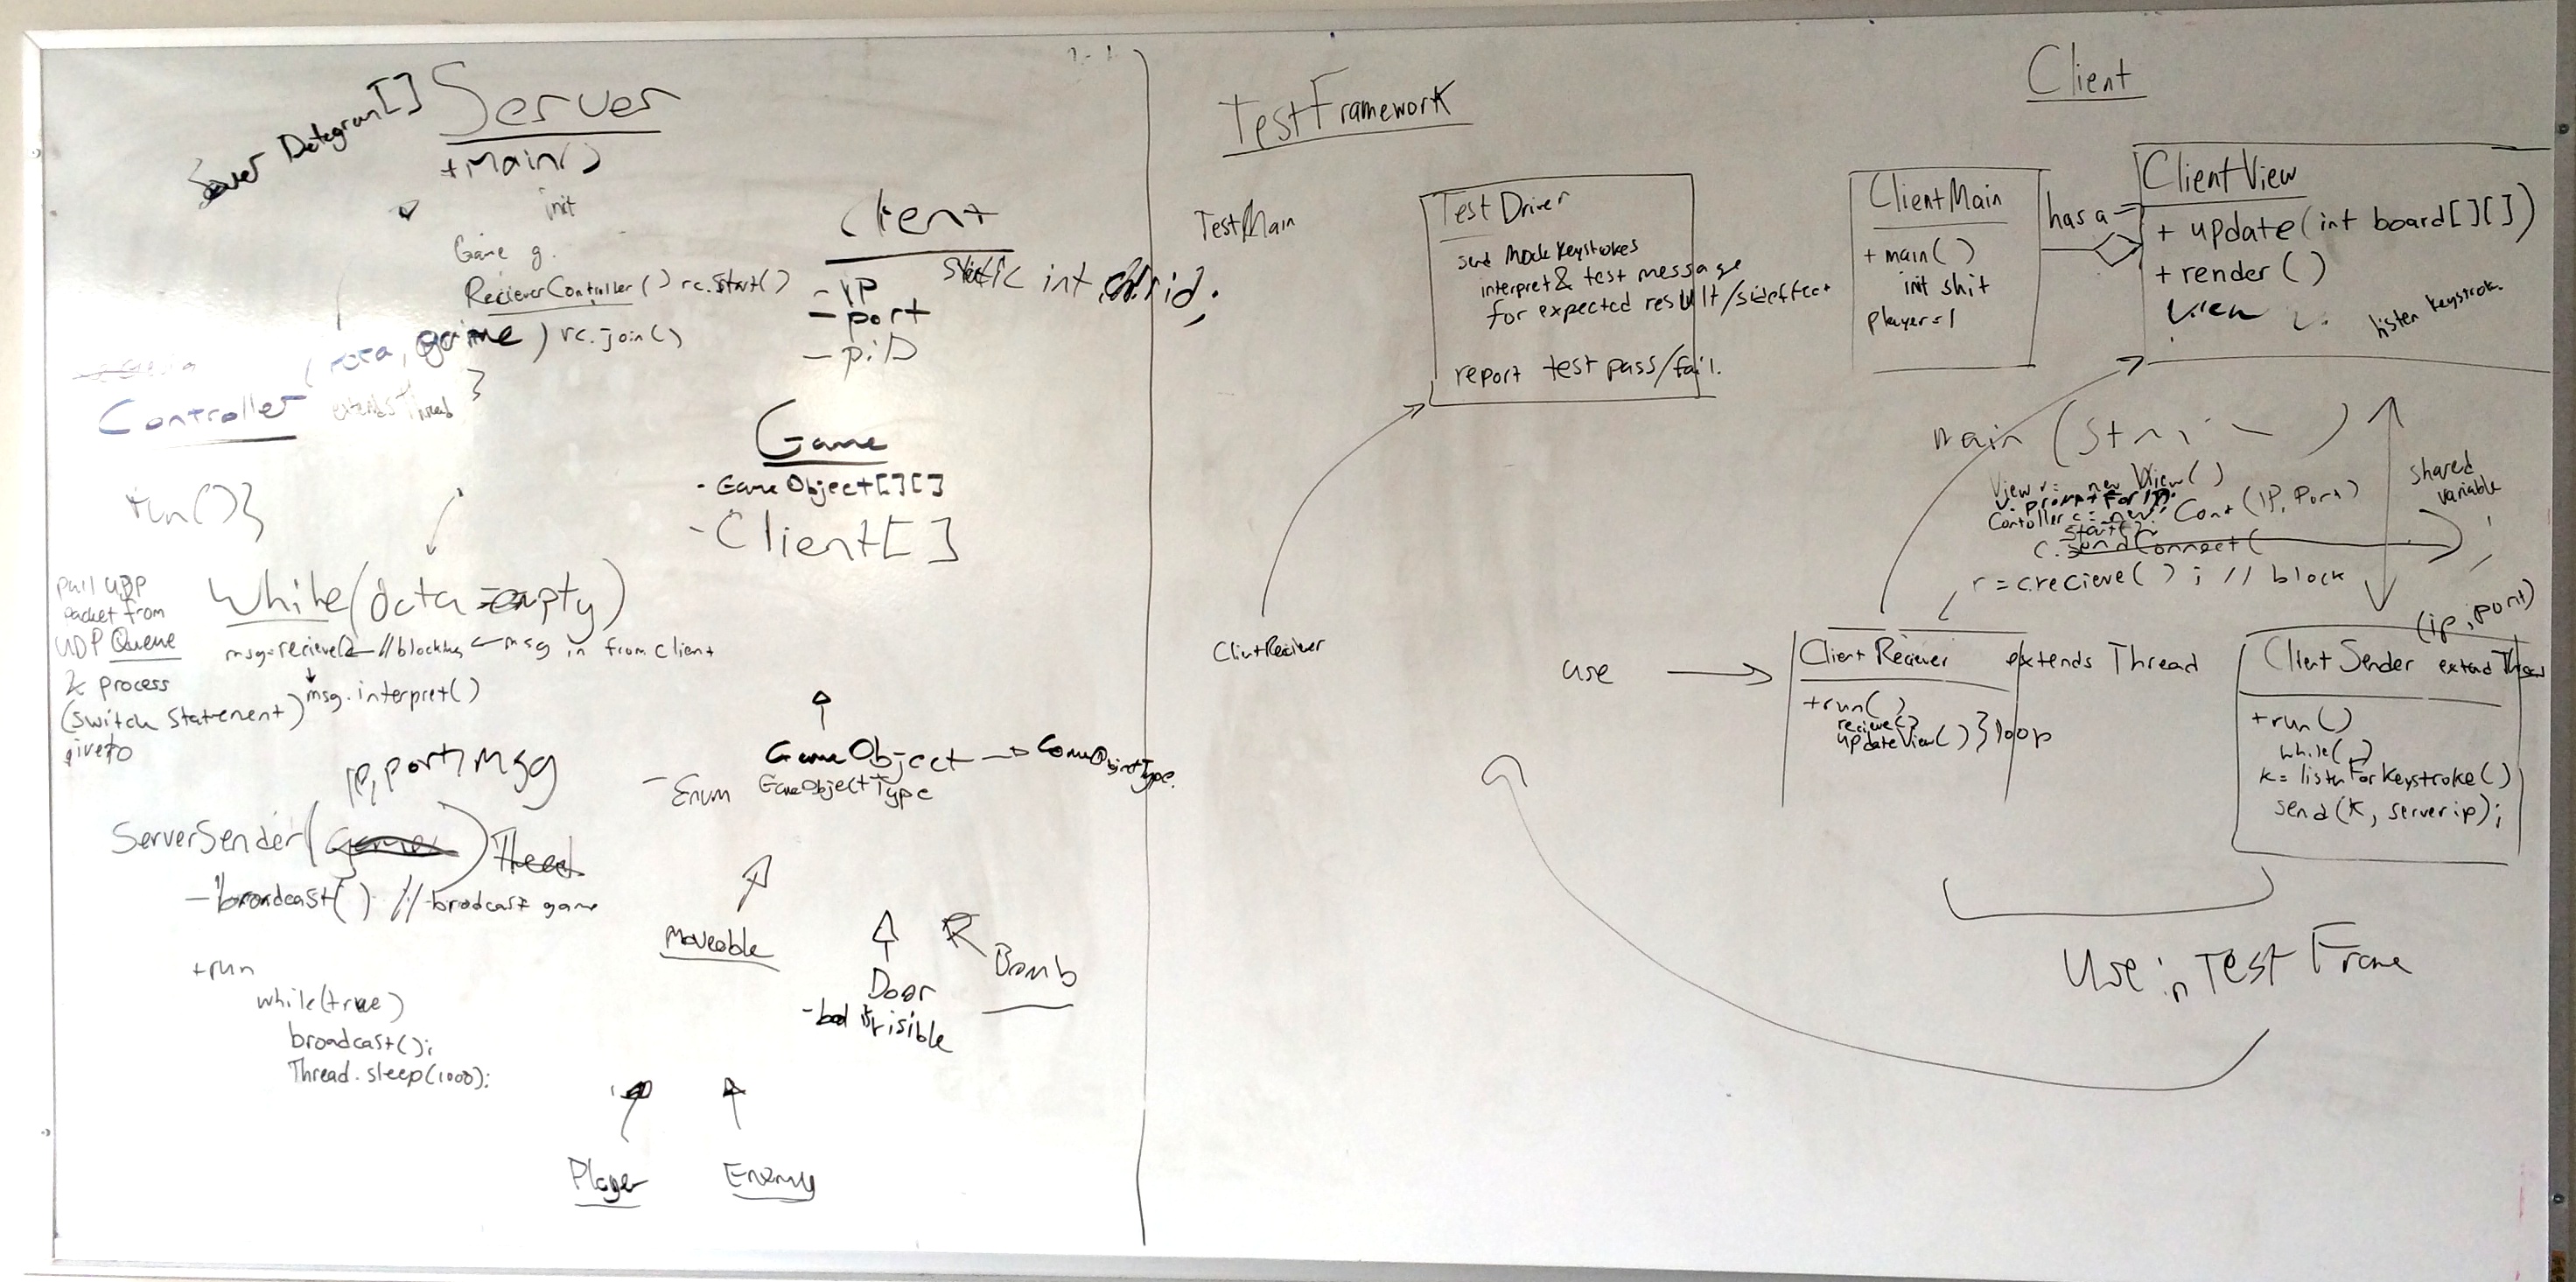 Server Datagram[]
Server
+Main()
init
Game g.
RecieverController() rc.start()
(data, game) rc.join()
Controller extends Thread }
run(){
Client
-IP
-port
-piD
static int id;
Game
- GameObject[][]
- Client[]
While(data = empty)
pull UDP
packet from
UDP Queue
& process
(switch statement)
give to
msg=recieve() //blocking ← msg in from client
msg.interpret()
ip, port, msg
ServerSender(game) Thread
-broadcast() //brodcast game
+run
while(true)
broadcast();
Thread.sleep(1000);
GameObject → GameObjectType
- Enum GameObjectType
Moveable
Door
-bool isVisible
Bomb
Player
Enemy
TestFramework
TestMain
TestDriver
send Mock Keystrokes
interpret & test message
for expected result/sideffect
report test pass/fail.
ClientReciever
Client
ClientMain
+ main()
init shit
player=1
has a
ClientView
+ update(int board[][])
+ render()
View v.
listen keystrok.
main (Stri )
View v = new View()
v.promptForIP();
Controller c = new Cont(IP, Port)
start();
c.sendConnect(
r = c.recieve(); // block
shared
variable
use
ClientReciever extends Thread
+run()
recieve()
updateView() } loop
(ip, port)
ClientSender extend Thread
+run()
while( )
k= listenForKeystroke()
send(k, serverip);
Use in Test Frame